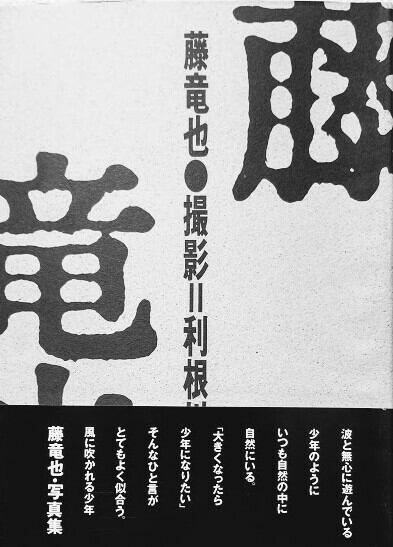 藤
竜
藤竜也●撮影=利根
波と無心に遊んでいる
少年のように
いつも自然の中に
自然にいる。
「大きくなったら
少年になりたい」
そんなひと言が
とてもよく似合う。
風に吹かれる少年
藤竜也・写真集